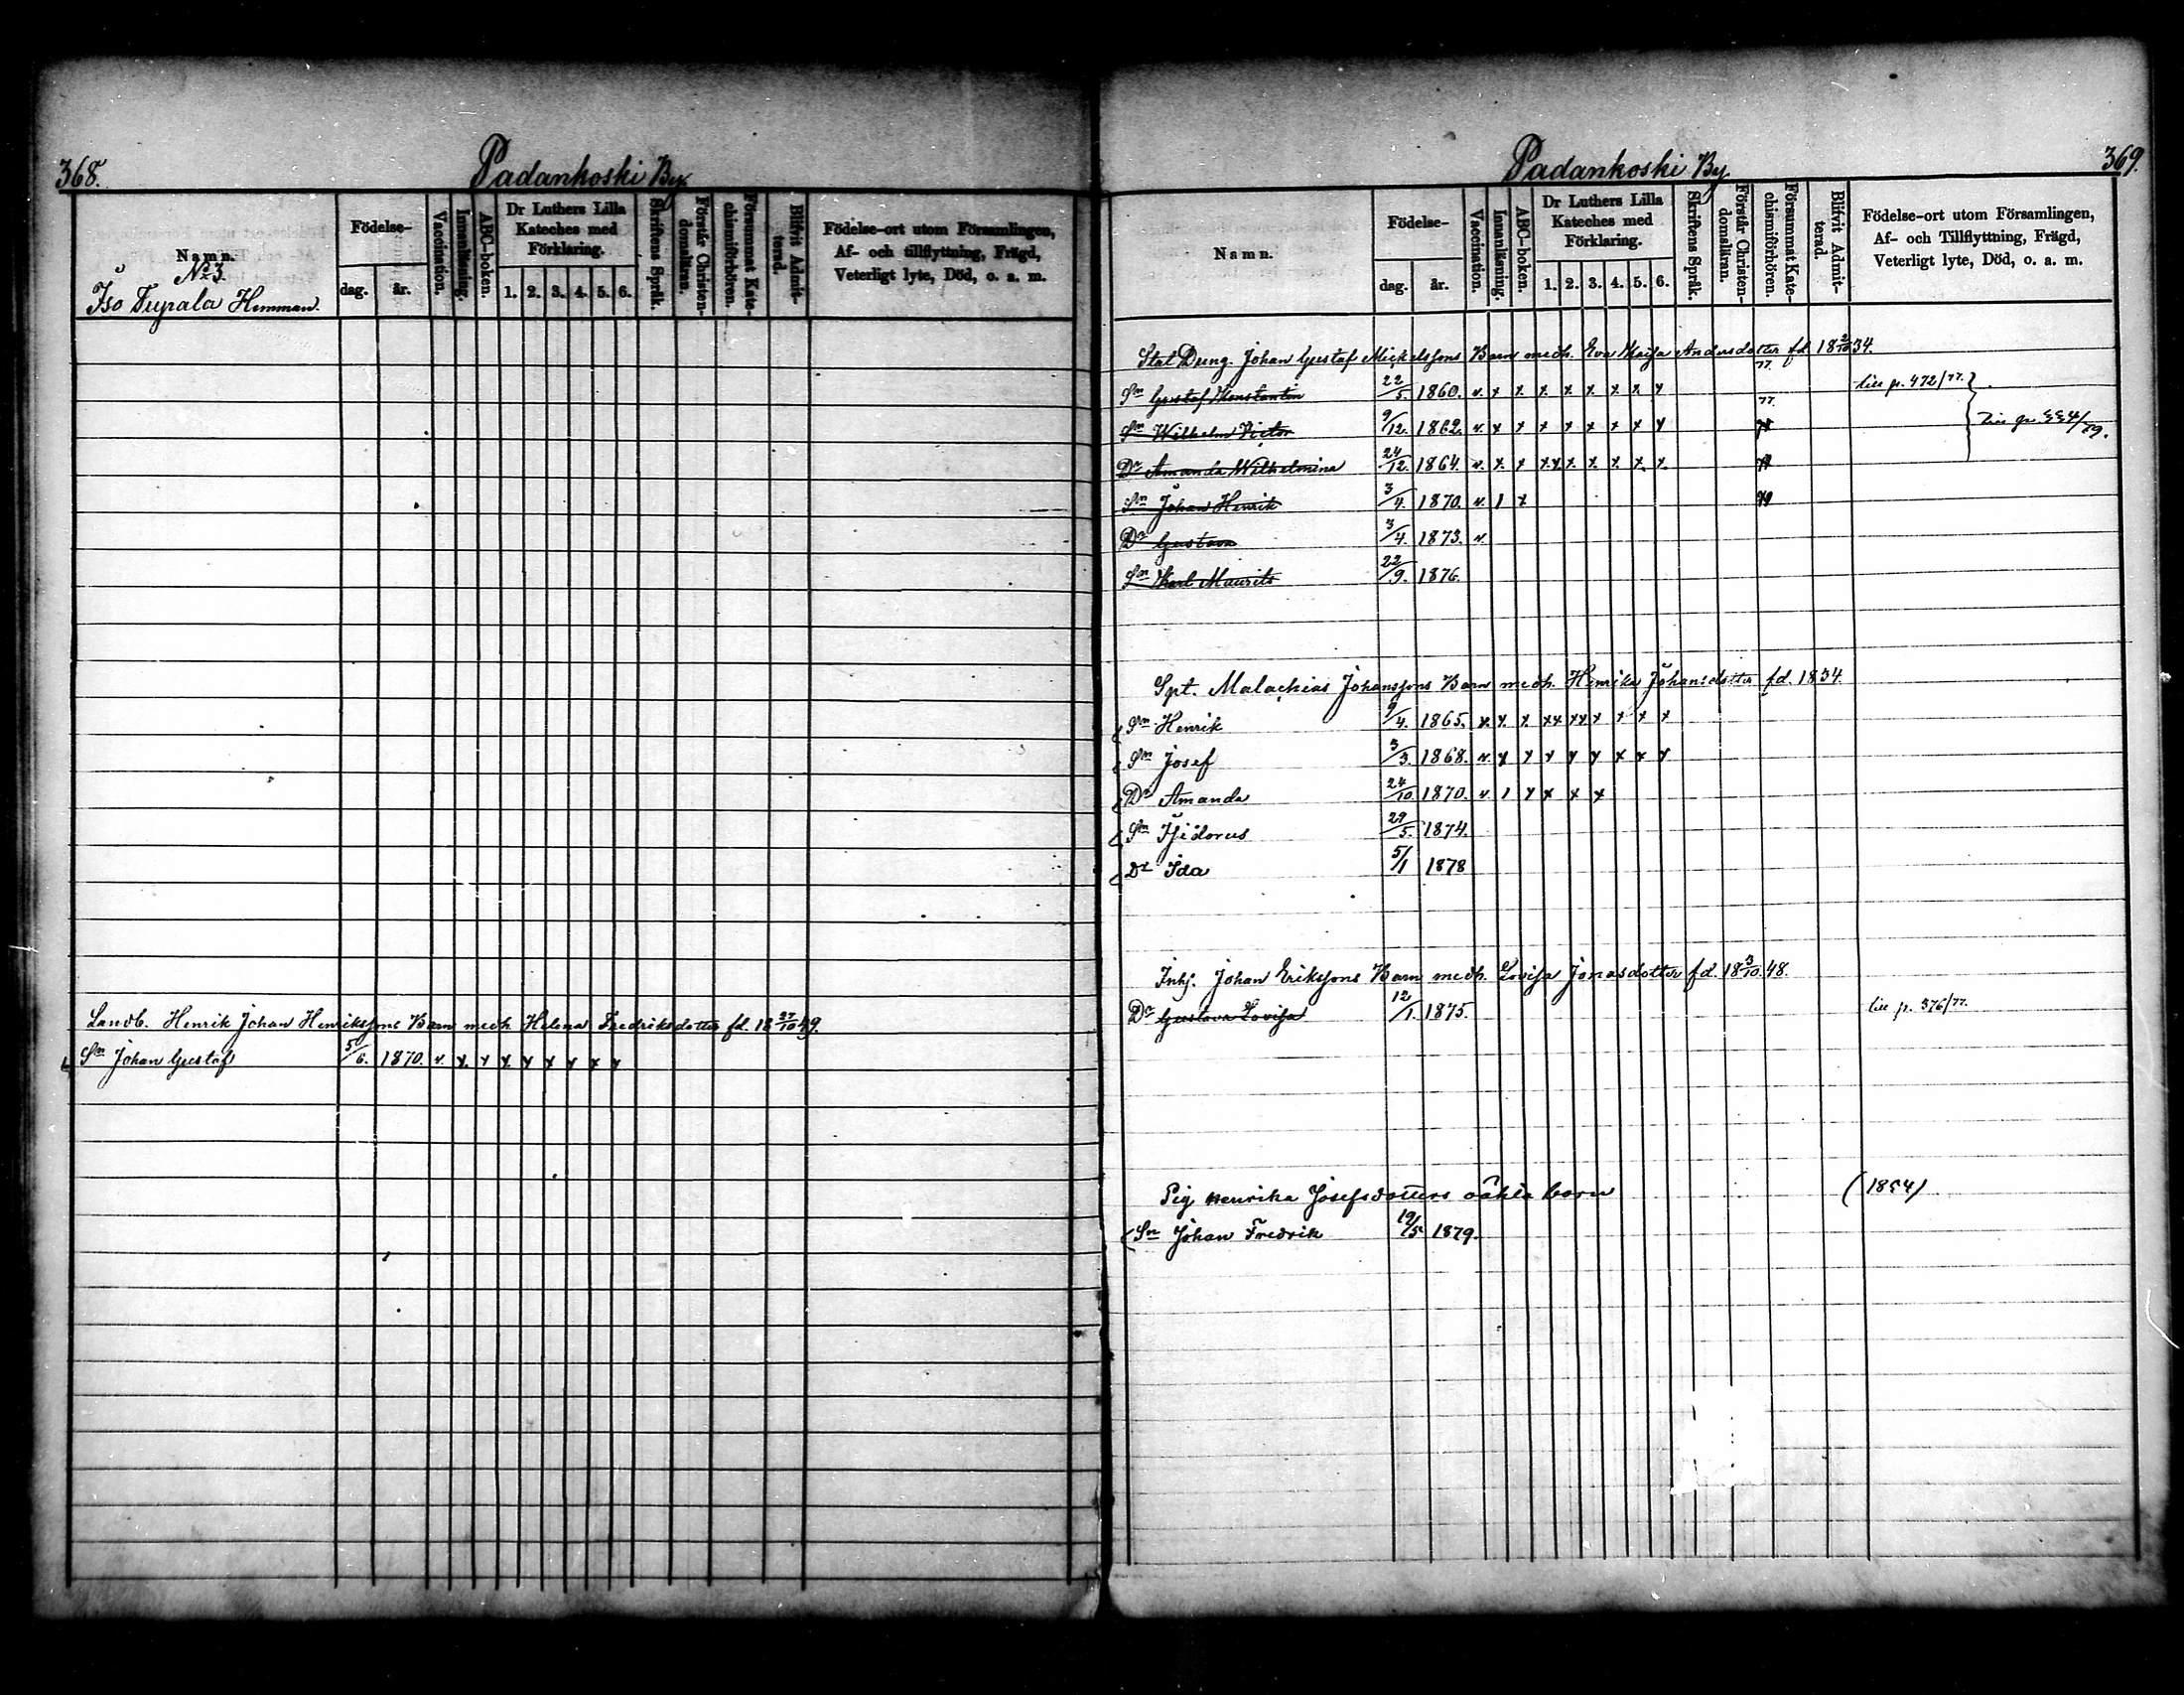 368.
Padankoski By.
Namn.
No 3.
Iso Tupala Hemman.
Födelse-
dag.
år.
Vaccination.
Innanläsning.
ABC-boken.
Dr Luthers Lilla
Kateches med
Förklaring.
1. 2. 3. 4. 5. 6.
Skriftens Språk.
Förstår Christen-
domsläran.
Försummat Kate-
chismiförhören.
Blifvit Admit-
terad.
Födelse-ort utom Församlingen,
Af- och tillflyttning, Frägd,
Veterligt lyte, Död, o. a. m.
Landb. Henrik Johan Henrikssons Barn med h. Helena Fredriksdotter fd. 18 27/10 49.
Sn Johan Gustaf 5/6. 1870. v. x x x x x x x x
369.
Padankoski By.
Namn.
Födelse-
dag.
år.
Vaccination.
Innanläsning.
ABC-boken.
Dr Luthers Lilla
Kateches med
Förklaring.
1. 2. 3. 4. 5. 6.
Skriftens Språk.
Förstår Christen-
domsläran.
Försummat Kate-
chismiförhören.
Blifvit Admit-
terad.
Födelse-ort utom Församlingen,
Af- och Tillflyttning, Frägd,
Veterligt lyte, Död, o. a. m.
Johan Gustaf Mickelssons Barn med h. Eva Maija Andersdotter fd. 18 2/10 34.
Sn Gustaf Konstantin 22/5. 1860. v. x x x x x x x x 77. p. 472/77.
Sn Wilhelm Victor 9/12. 1862. v. x x x x x x x x 77.
Dr Amanda Wilhelmina 24/12. 1864. v. x x xx x x x x x
Sn Johan Henrik 3/4. 1870. v. 1 x
Dr Gustava 3/4. 1873. v.
Sn Karl Maurits 22/9. 1876.
Spt. Malachias Johanssons Barn med h. Henrika Johansdotter fd. 1834.
Sn Henrik 9/4. 1865. v. x x xx xx x x x x
Sn Josef 3/3. 1868. v. x x x x x x x x
Dr Amanda 24/10. 1870. v. 1 x x x x
Sn Isidorus 29/5. 1874.
Dr Ida 5/1 1878
Inhj. Johan Erikssons Barn med h. Lovisa Jonasdotter fd. 18 3/10. 48.
Dr Gustava Lovisa 12/1. 1875. p. 376/77.
Pig Henrika Josefsdotters oäkta barn (1854)
Sn Johan Fredrik 19/5 1879.